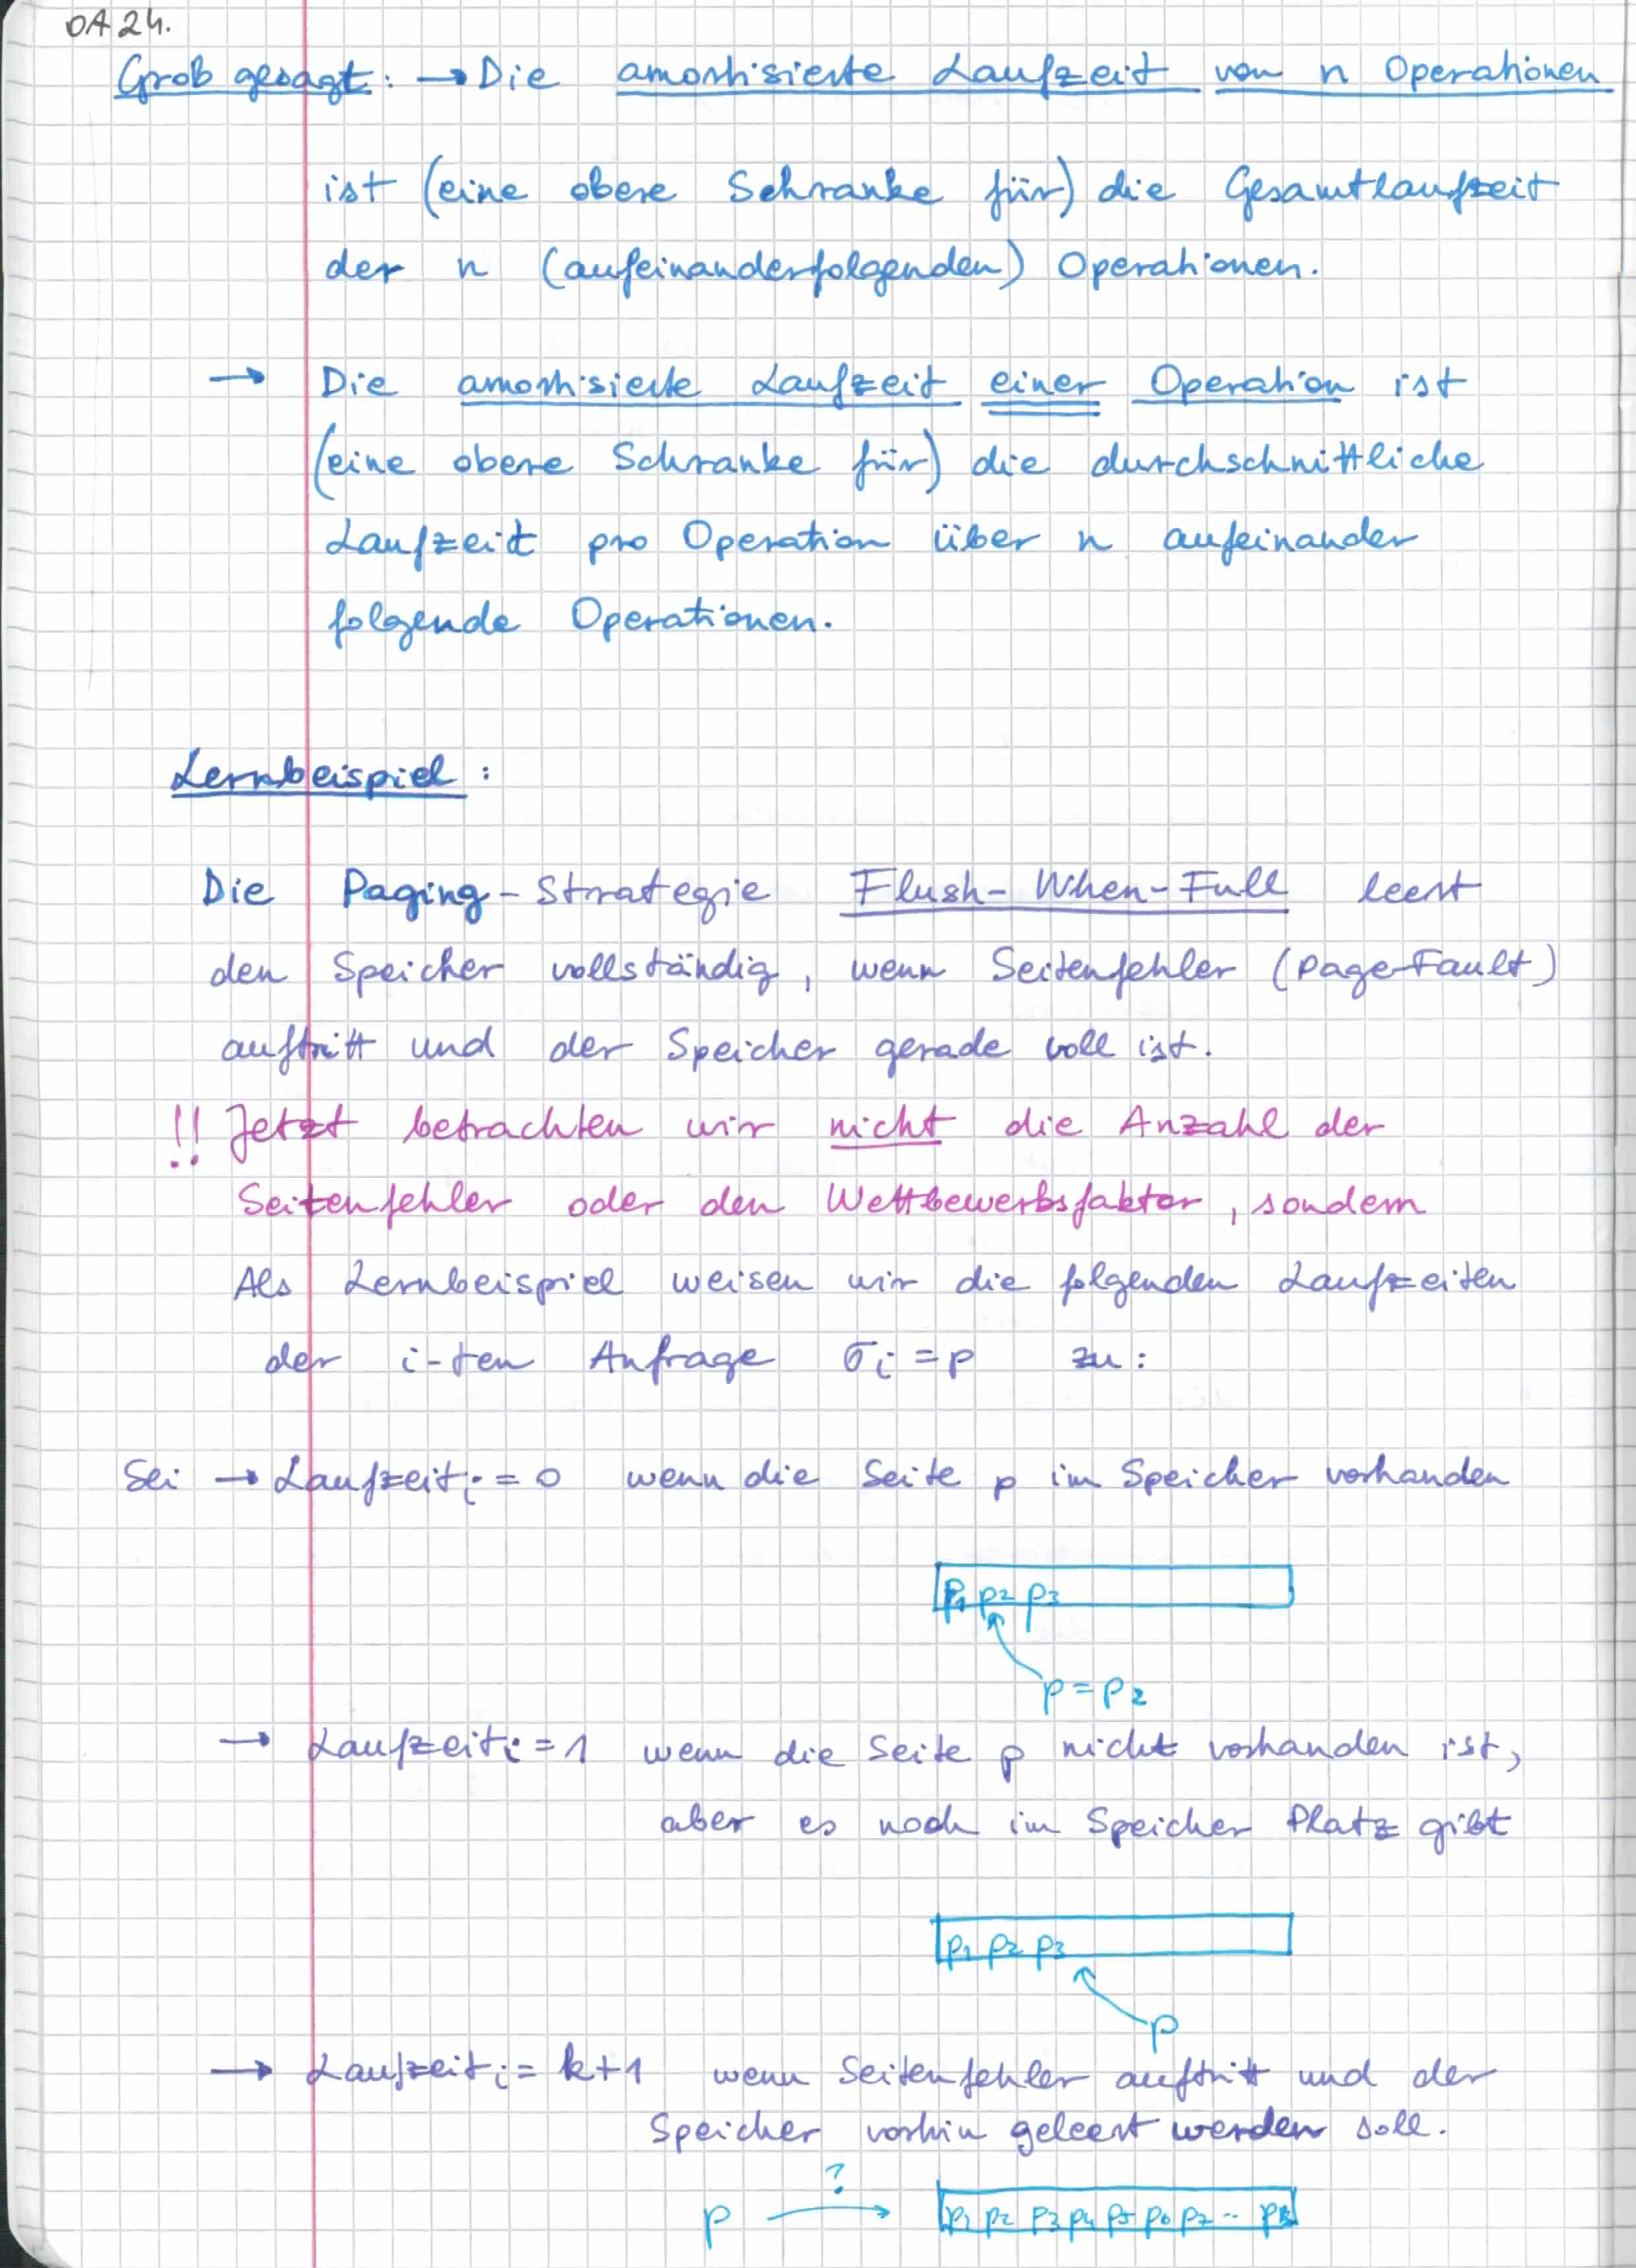 OA 24.
Grob gesagt: → Die amortisierte Laufzeit von n Operationen
ist (eine obere Schranke für) die Gesamtlaufzeit
der n (aufeinanderfolgenden) Operationen.
→ Die amortisierte Laufzeit einer Operation ist
(eine obere Schranke für) die durchschnittliche
Laufzeit pro Operation über n aufeinander
folgende Operationen.
Lernbeispiel:
Die Paging-Strategie Flush-When-Full leert
den Speicher vollständig, wenn Seitenfehler (Page-Fault)
auftritt und der Speicher gerade voll ist.
!! Jetzt betrachten wir nicht die Anzahl der
Seitenfehler oder den Wettbewerbsfaktor, sondern
Als Lernbeispiel weisen wir die folgenden Laufzeiten
der i-ten Anfrage σi = p zu:
Sei → Laufzeiti = 0 wenn die Seite p im Speicher vorhanden
p1 p2 p3
p = p2
→ Laufzeiti = 1 wenn die Seite p nicht vorhanden ist,
aber es noch im Speicher Platz gibt
p1 p2 p3
p
→ Laufzeiti = k+1 wenn Seitenfehler auftritt und der
Speicher vorhin geleert werden soll.
?
p → p1 p2 p3 p4 p5 p6 p7 -- pk